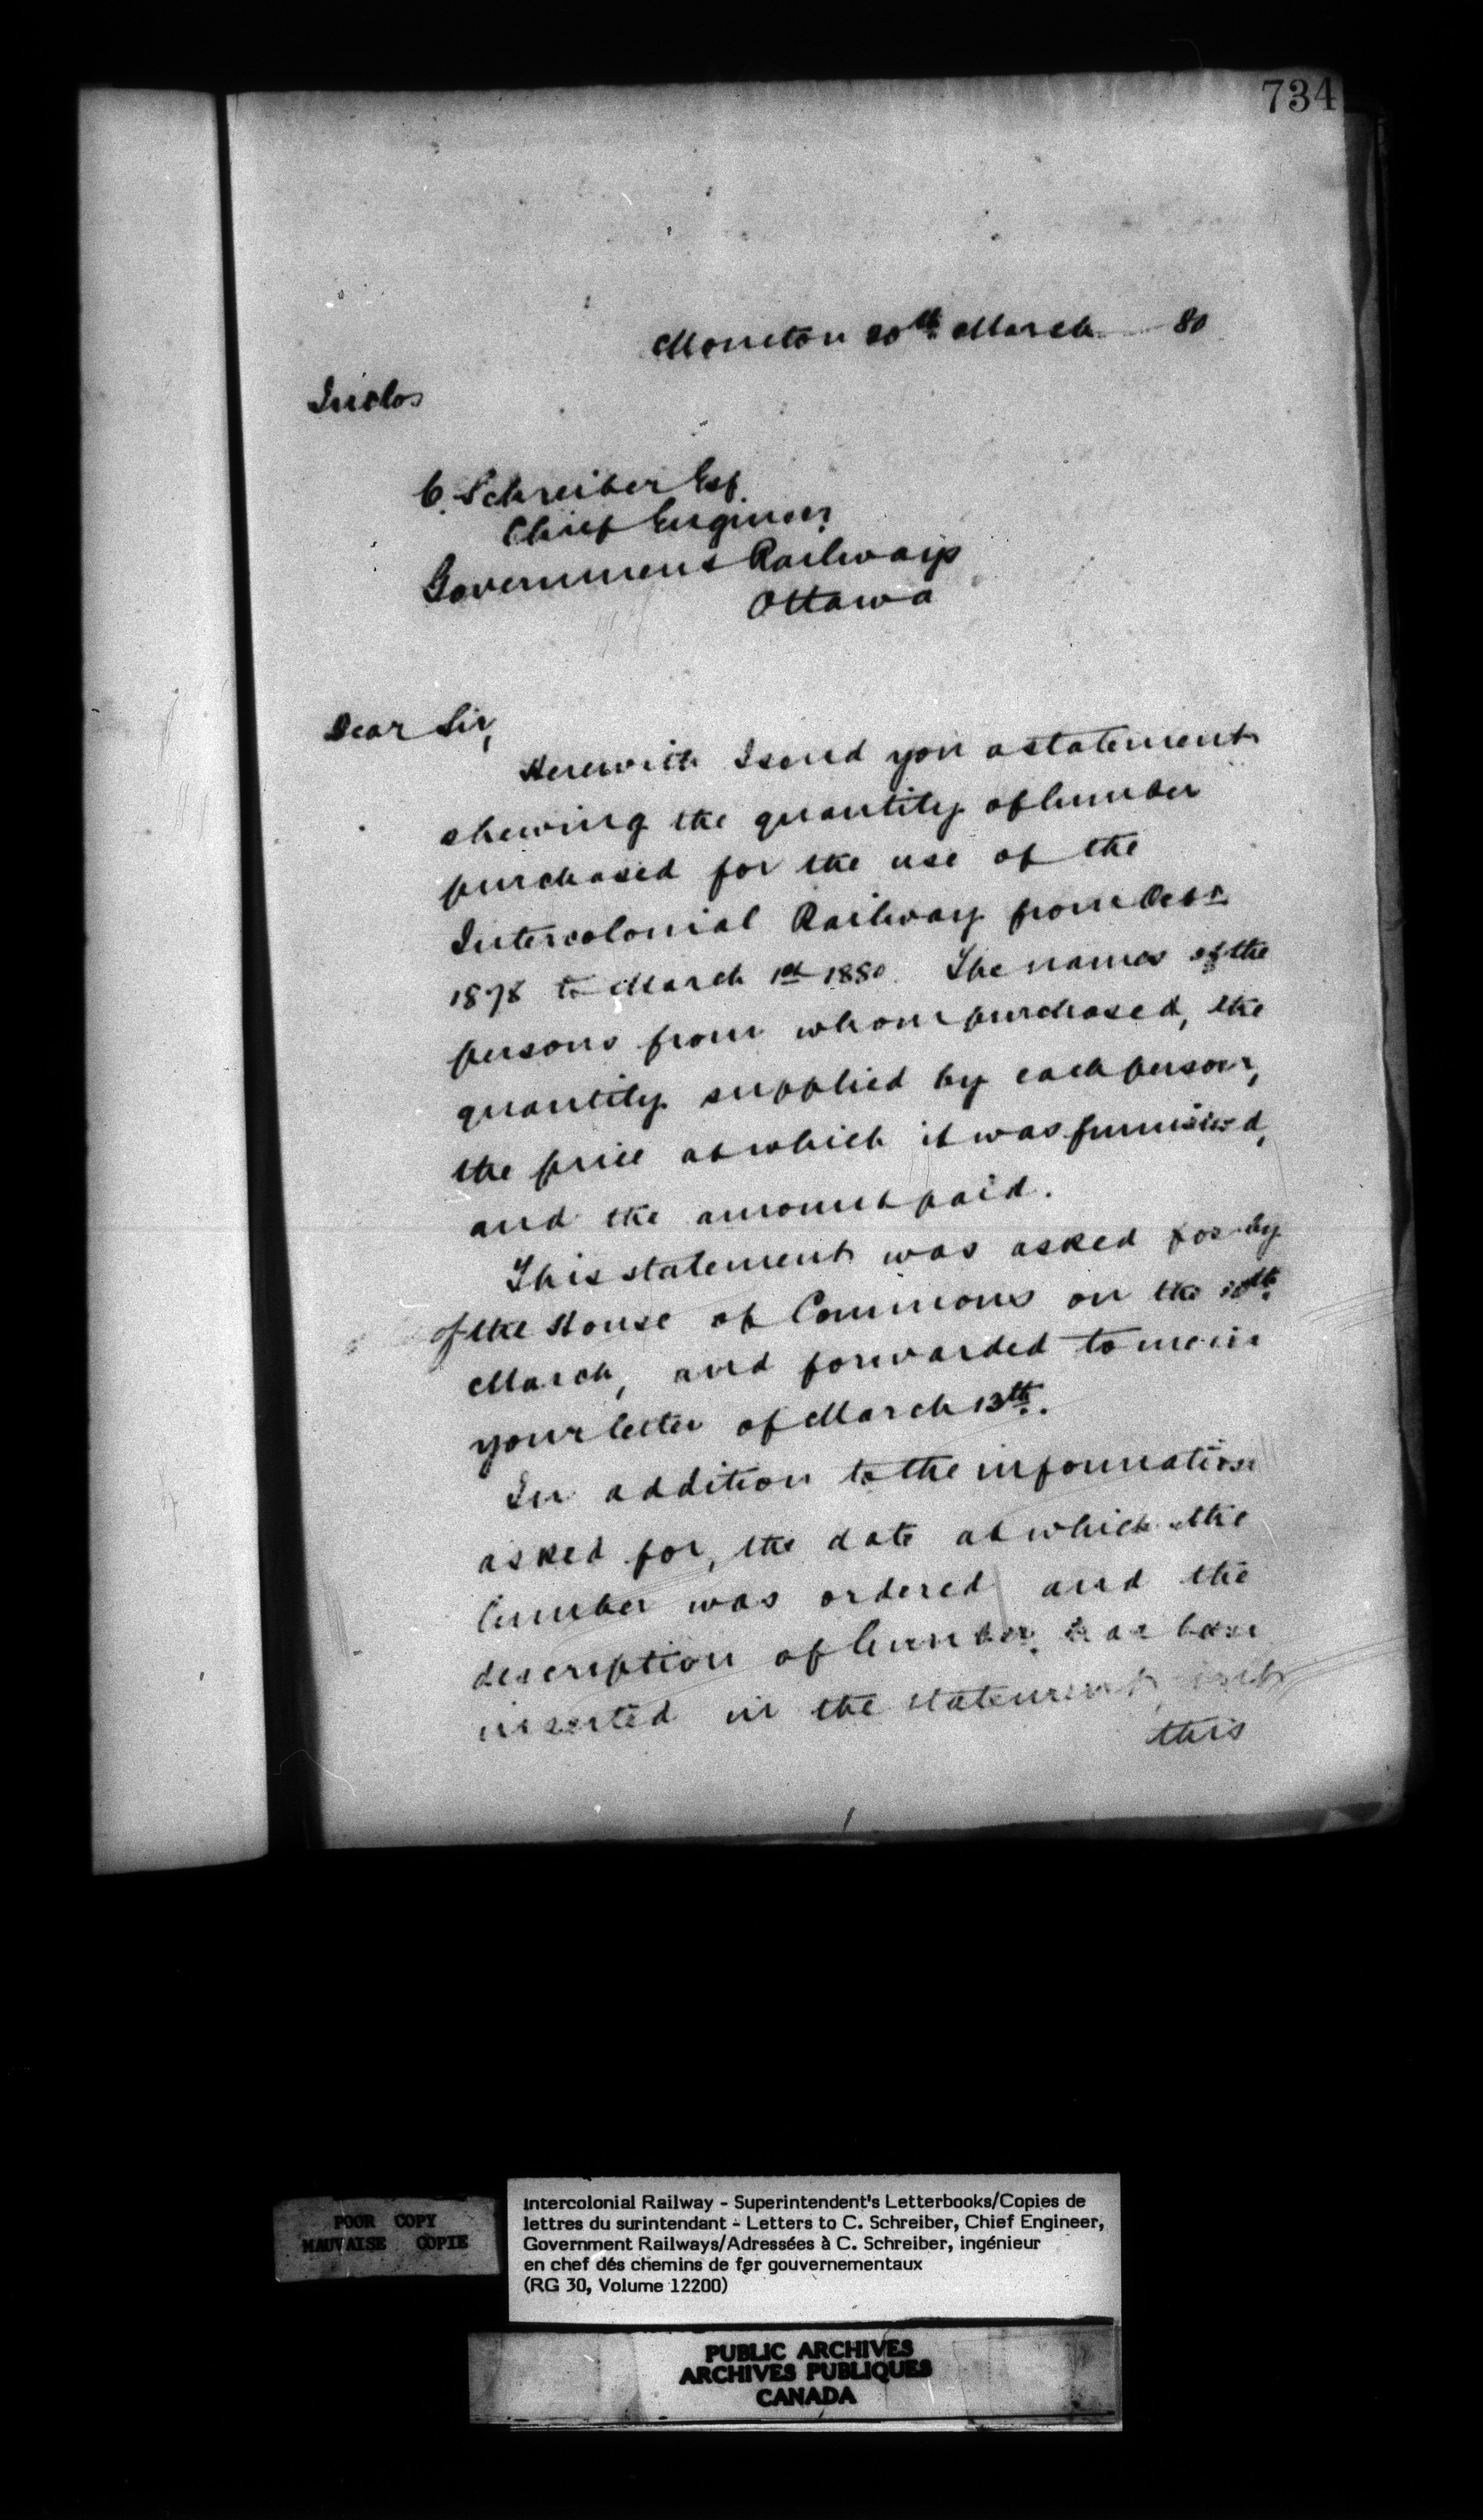 734
Moncton 20th March 80
Inclos
C. Schreiber Esq
Chief Engineer
Government Railways
Ottawa
Dear Sir,
Herewith I send you a statement
shewing the quantity of lumber
purchased for the use of the
Intercolonial Railway from Octr
1878 to March 1st 1880. The names of the
persons from whom purchased, the
quantity supplied by each person,
the price at which it was furnished,
and the amount paid.
This statement was asked for by
of the House of Commons on the 10th
March, and forwarded to me in
your letter of March 13th.
In addition to the information
asked for, the date at which the
lumber was ordered and the
description of lumber has been
inserted in the statement,
this
POOR COPY
MAUVAISE COPIE
Intercolonial Railway - Superintendent's Letterbooks/Copies de
lettres du surintendant - Letters to C. Schreiber, Chief Engineer,
Government Railways/Adressées à C. Schreiber, ingénieur
en chef dés chemins de fer gouvernementaux
(RG 30, Volume 12200)
PUBLIC ARCHIVES
ARCHIVES PUBLIQUES
CANADA